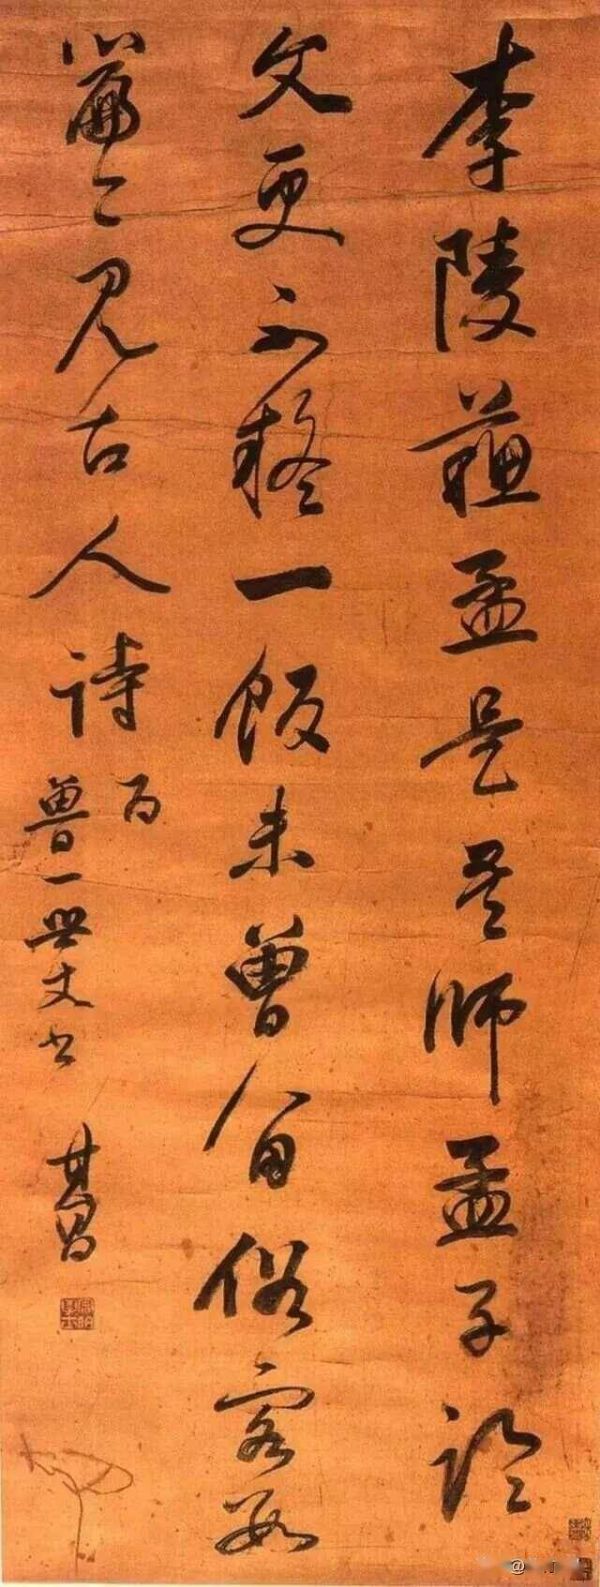 李陵蘓孟是吾師孟子論
文更不疑一飯未曾留俗客數
篇今見古人詩
一世丈書
其昌